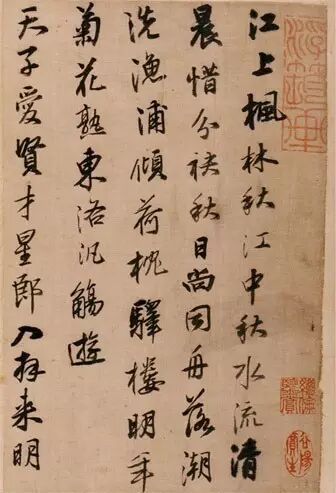 江上楓林秋江中秋水流清
晨惜分袂秋日尚同舟落潮
洗漁浦傾荷枕驛樓明年
菊花熟東洛汎觴遊
天子愛賢才星郎入拜來明